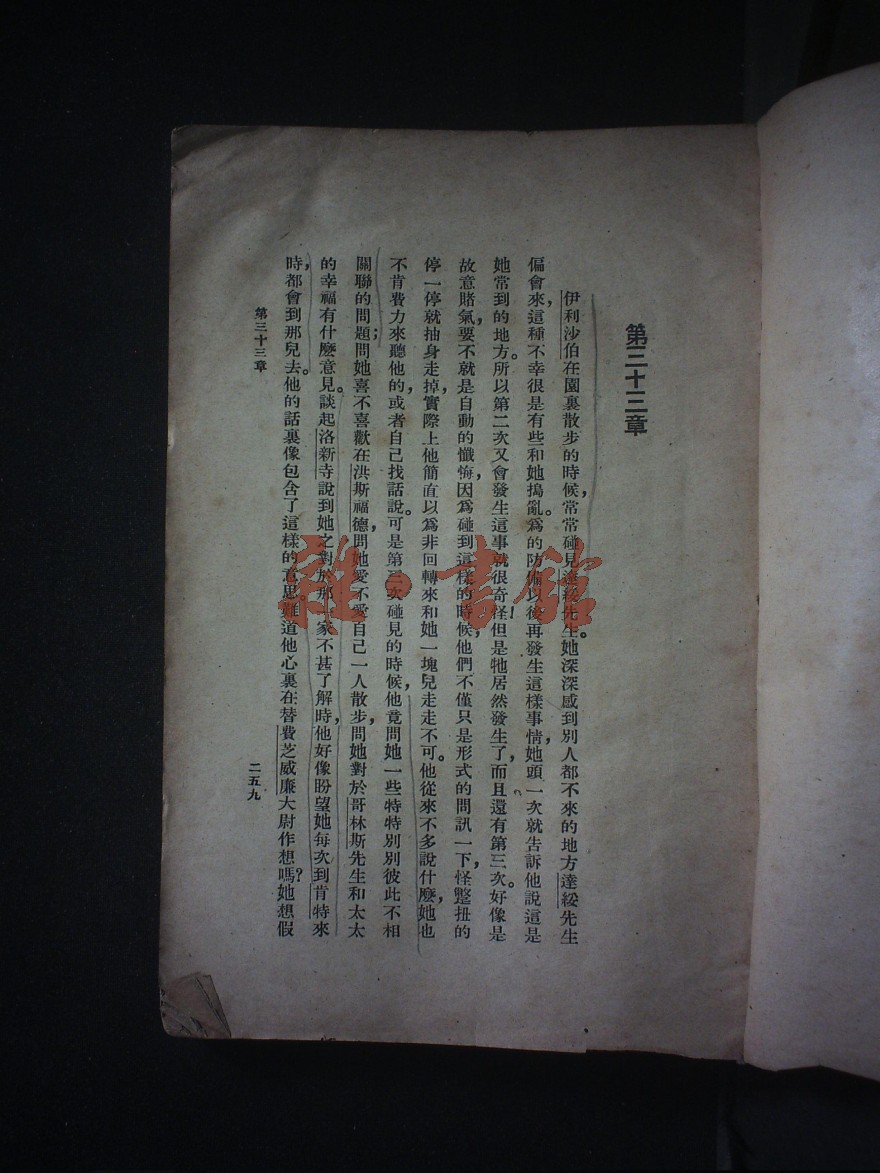 第三十三章
伊利沙伯在園裏散步的時候，常常碰見達綏先生。她深深感到別人都不來的地方達綏先生
偏會來，這種不幸很是有些和她搗亂。爲的防備以後再發生這樣事情，她頭一次就告訴他說這是
她常到的地方。所以第二次又會發生這事就很奇怪！但是牠居然發生了，而且還有第三次。好像是
故意賭氣，要不就是自動的懺悔，因爲碰到這樣的時候，他們不僅只是形式的問訊一下，怪蹩扭的
停一停就抽身走掉，實際上他簡直以爲非回轉來和她一塊兒走走不可。他從來不多說什麼，她也
不肯費力來聽他的，或者自己找話說。可是第三次碰見的時候，他竟問她一些特特別別彼此不相
關聯的問題；問她喜不喜歡在洪斯福德，問她愛不愛自己一人散步，問她對於哥林斯先生和太太
的幸福有什麼意見。談起洛新寺說到她之對於那一家不甚了解時，他好像盼望她每次到肯特來
時，都會到那兒去。他的話裏像包含了這樣的意思難道他心裏在替費芝威廉大尉作想嗎？她想假
第三十三章
二五九
雜·書館